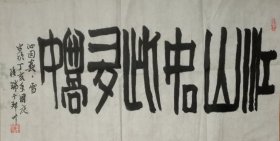 江山如此多嬌
沁园春雪
岁次丁亥年国庆